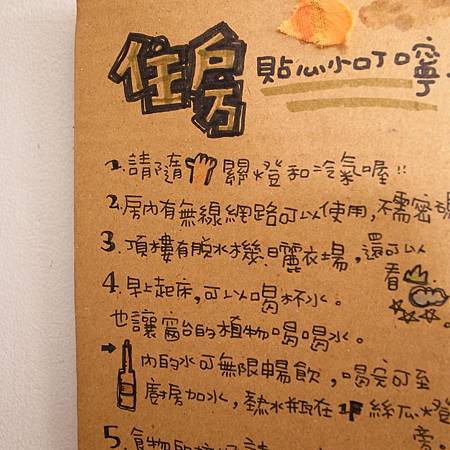 住房 貼心小叮嚀
1.請隨 關燈和冷氣喔!!
2.房內有無線網路可以使用,不需密碼
3.頂樓有脫水機、曬衣場,還可以
看
4.早上起床,可以喝杯水。
也讓窗台的植物喝喝水。
內的水可無限暢飲,喝完可至
廚房加水,熱水瓶在1F絲瓜燈
旁。
5.食物